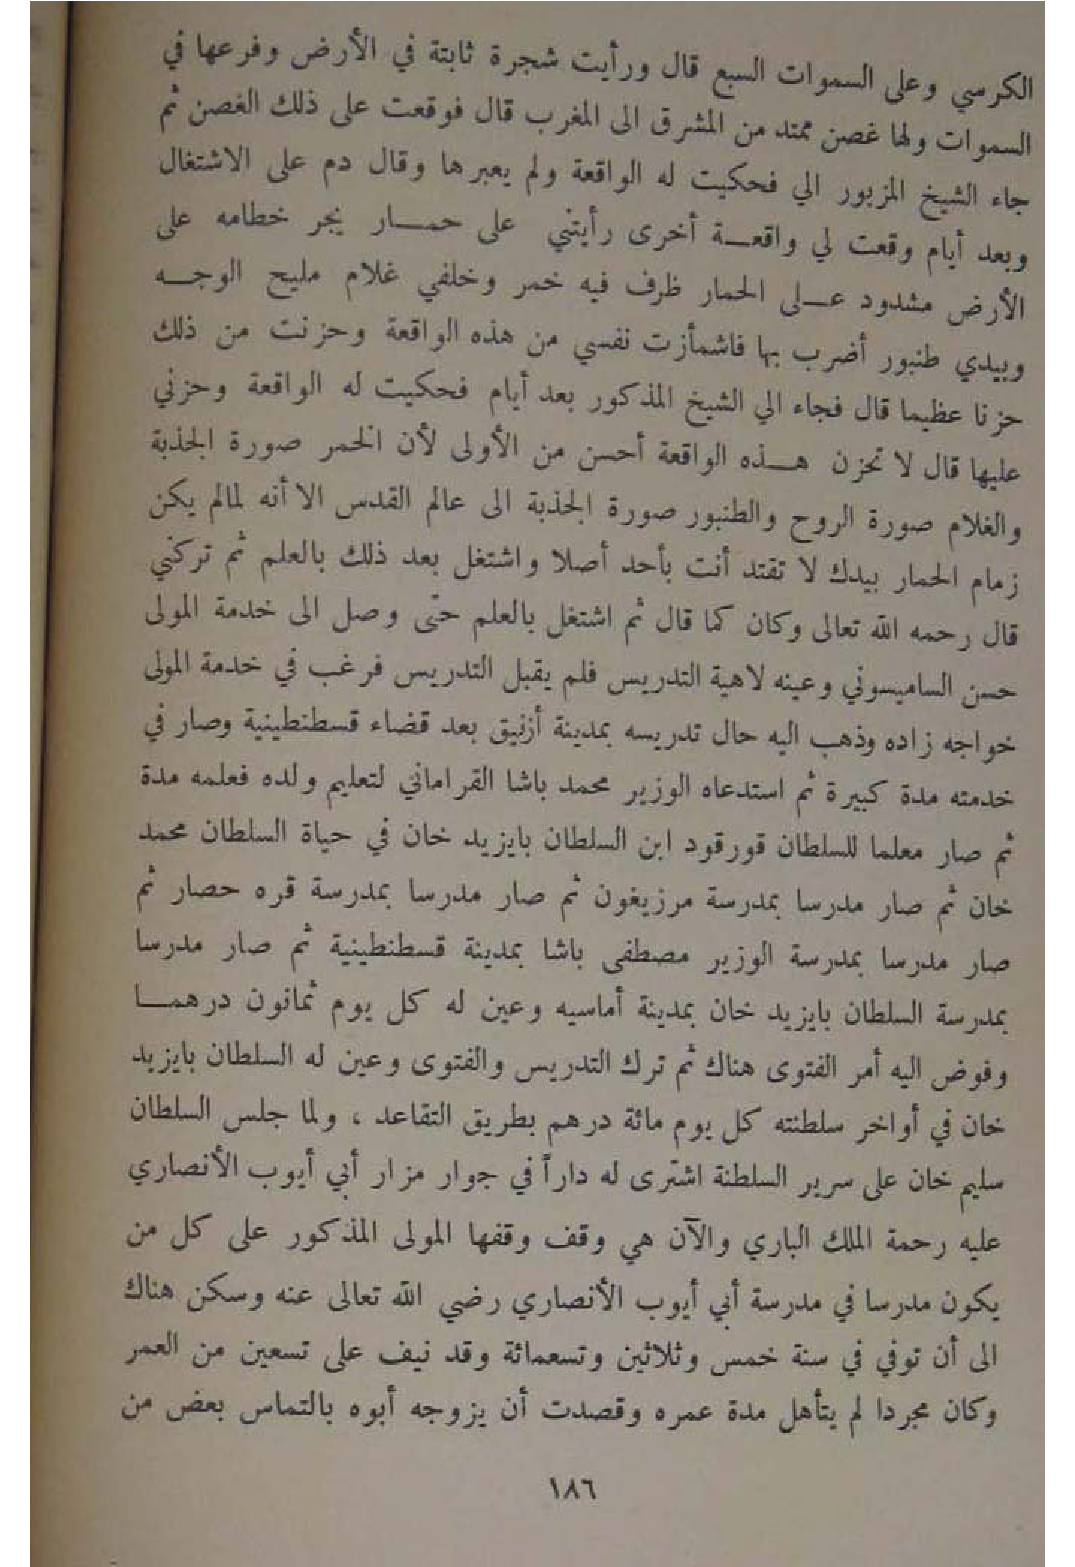 الكرسي وعلى السموات السبع قال ورأيت شجرة ثابتة في الأرض وفرعها في
السموات ولها غصن ممتد من المشرق الى المغرب قال فوقعت على ذلك الغصن ثم
جاء الشيخ المزبور الي فحكيت له الواقعة ولم يعبرها وقال دم على الاشتغال
وبعد أيام وقعت لي واقعــة أخرى رأيتني على حمــار يجر خطامه على
الأرض مشدود عــلى الحمار ظرف فيه خمر وخلفي غلام مليح الوجــه
وبيدي طنبور أضرب بها فاشمأزت نفسي من هذه الواقعة وحزنت من ذلك
حزنا عظيما قال فجاء الي الشيخ المذكور بعد أيام فحكيت له الواقعة وحزني
عليها قال لا تحزن هــذه الواقعة أحسن من الأولى لأن الخمر صورة الجذبة
والغلام صورة الروح والطنبور صورة الجذبة الى عالم القدس الا أنه لمالم يكن
زمام الحمار بيدك لا تقتد أنت بأحد أصلا واشتغل بعد ذلك بالعلم ثم تركني
قال رحمه الله تعالى وكان كما قال ثم اشتغل بالعلم حتى وصل الى خدمة المولى
حسن الساميسوني وعينه لاهية التدريس فلم يقبل التدريس فرغب في خدمة المولى
خواجه زاده وذهب اليه حال تدريسه بمدينة أزنيق بعد قضاء قسطنطينية وصار في
خدمته مدة كبيرة ثم استدعاه الوزير محمد باشا القراماني لتعليم ولده فعلمه مدة
ثم صار معلما للسلطان قورقود ابن السلطان بايزيد خان في حياة السلطان محمد
خان ثم صار مدرسا بمدرسة مرزيغون ثم صار مدرسا بمدرسة قره حصار ثم
صار مدرسا بمدرسة الوزير مصطفى باشا بمدينة قسطنطينية ثم صار مدرسا
بمدرسة السلطان بايزيد خان بمدينة أماسيه وعين له كل يوم ثمانون درهمــا
وفوض اليه أمر الفتوى هناك ثم ترك التدريس والفتوى وعين له السلطان بايزيد
خان في أواخر سلطنته كل يوم مائة درهم بطريق التقاعد ، ولما جلس السلطان
سليم خان على سرير السلطنة اشترى له داراً في جوار مزار أبي أيوب الأنصاري
عليه رحمة الملك الباري والآن هي وقف وقفها المولى المذكور على كل من
يكون مدرسا في مدرسة أبي أيوب الأنصاري رضي الله تعالى عنه وسكن هناك
الى أن توفي في سنة خمس وثلاثين وتسعمائة وقد نيف على تسعين من العمر
وكان مجردا لم يتأهل مدة عمره وقصدت أن يزوجه أبوه بالتماس بعض من
١٨٦